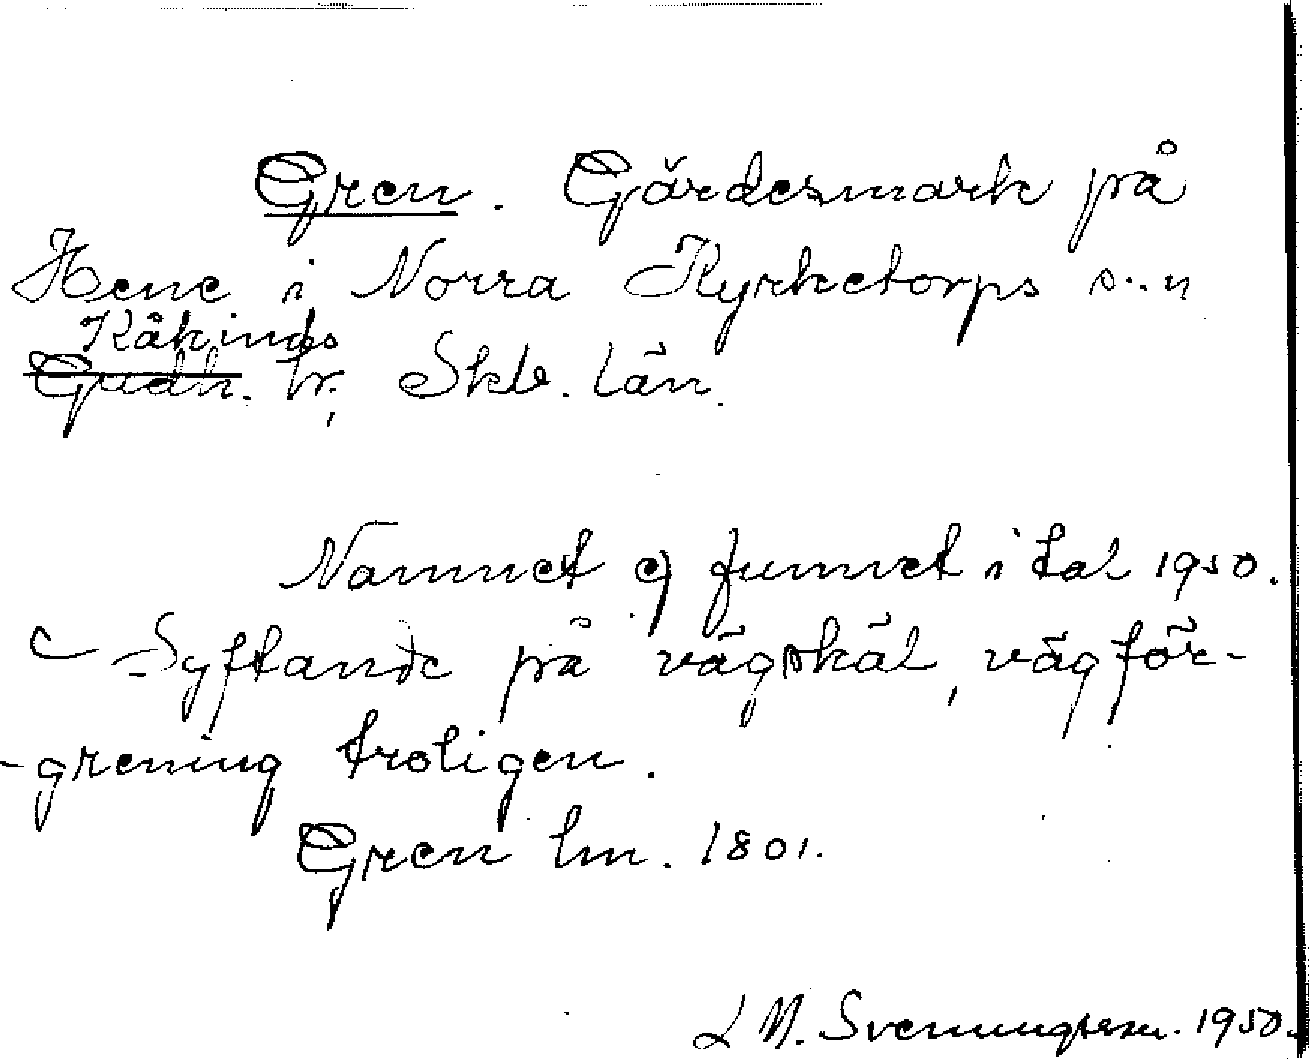 Gren. Gärdesmark på
Hene i Norra Kyrketorps s..n
Kåkinds
Gudh. hr, Skb. län.
Namnet ej funnet i tal 1950.
Syftande på vägskäl, vägför-
-grening troligen.
Gren lm. 1801.
L M. Svenungsson. 1950.